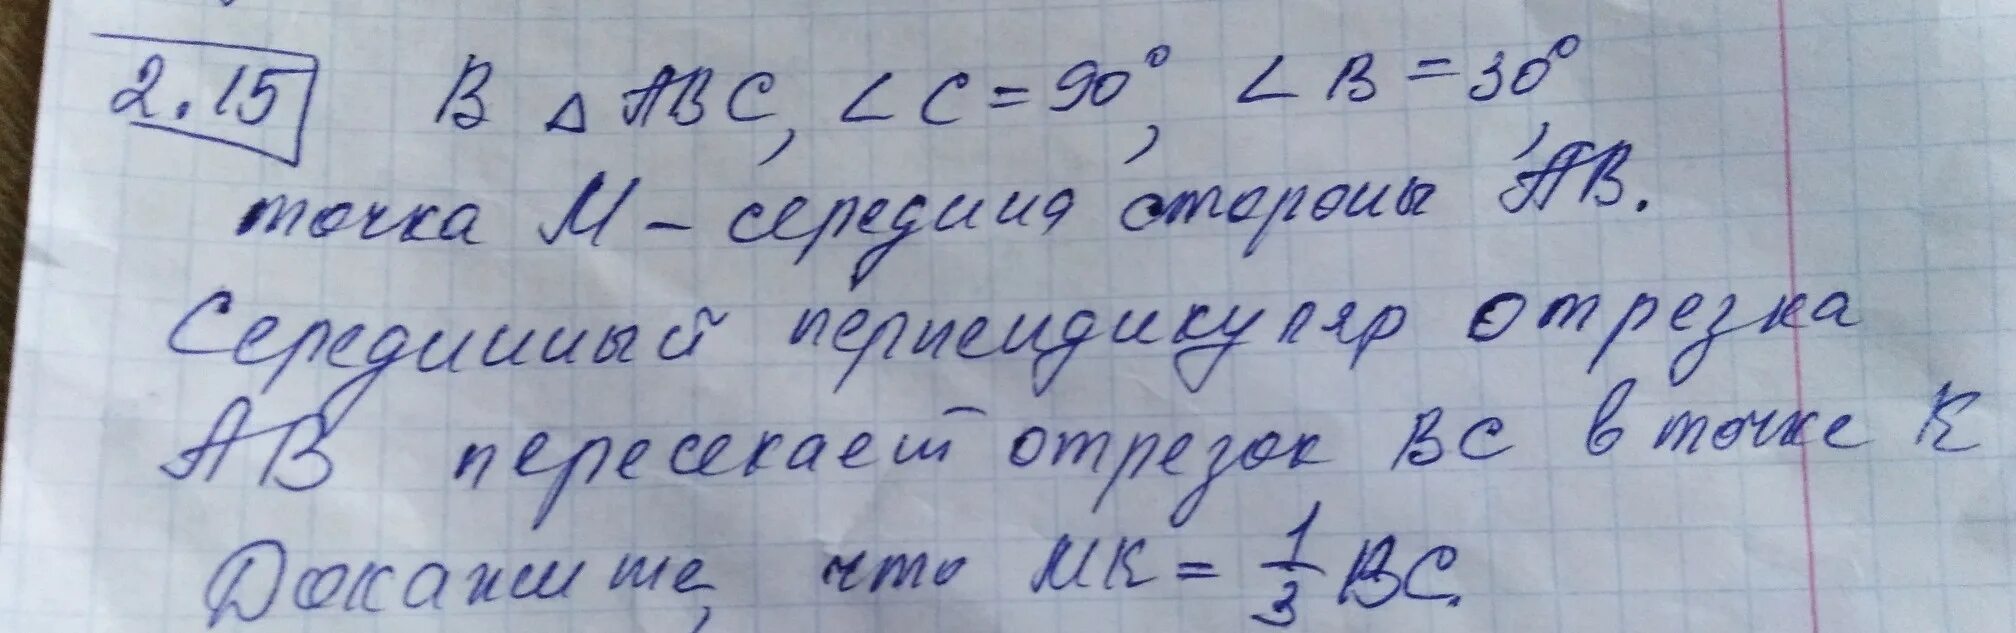 2.15 В △ АВС, ∠ С = 90°, ∠ В = 30°,
точка М – середина стороны АВ.
Серединный перпендикуляр отрезка
АВ пересекает отрезок ВС в точке К
Докажите, что МК = 1/3 ВС.